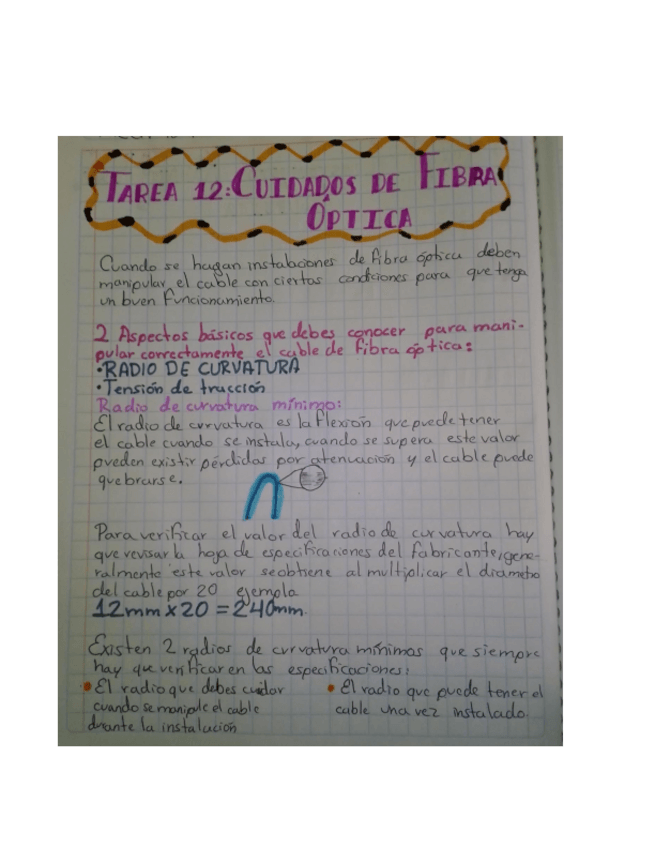 TAREA 12: CUIDADOS DE FIBRA
ÓPTICA
Cuando se hagan instalaciones de fibra óptica deben
manipular el cable con ciertas condiciones para que tenga
un buen funcionamiento.
2 Aspectos básicos que debes conocer para mani-
pular correctamente el cable de fibra óptica:
•RADIO DE CURVATURA
•Tensión de tracción
Radio de curvatura mínimo:
El radio de curvatura es la flexión que puede tener
el cable cuando se instala, cuando se supera este valor
pueden existir pérdidas por atenuación y el cable puede
quebrarse.
Para verificar el valor del radio de curvatura hay
que revisar la hoja de especificaciones del fabricante, gene-
ralmente este valor se obtiene al multiplicar el diámetro
del cable por 20 ejemplo
12mm x 20 = 240mm.
Existen 2 radios de curvatura mínimas que siempre
hay que verificar en las especificaciones:
• El radio que debes cuidar
cuando se manipule el cable
durante la instalación
• El radio que puede tener el
cable una vez instalado.